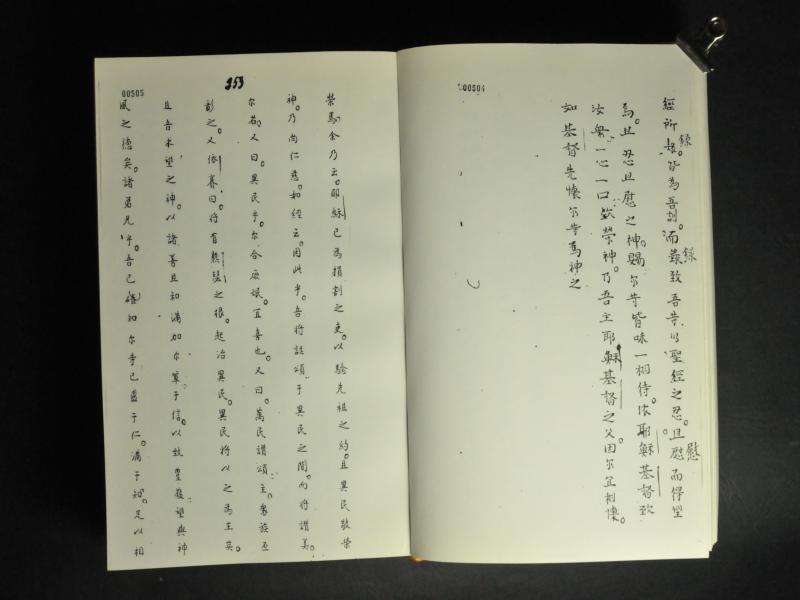 00504
經所錄皆為吾訓而錄致吾等以聖經之忍且慰而得望
焉且忍且慰之神賜尔等皆味一相待依耶穌基督致
汝無一心一口欽榮神乃吾主耶穌基督之父因尔宜相懷
如基督先懷尔等焉神之
00505
253
榮焉余乃云耶穌已為損割之吏以驗先祖之約且異民敬榮
神乃尚仁慈如經云因此乎吾將誌頌于異民之間而將讚美
尔名又曰異民乎尔合庶氓宜喜也又曰萬民讚頌主眾族亟
彰之又依賽曰將有熱瑟之根起治異民異民將以之為王矣
且吾求望之神以諸善且和滿加尔輩于信以致豐厥望與神
風之德矣諸弟兄乎吾已確知尔等已富于仁滿于知足以相